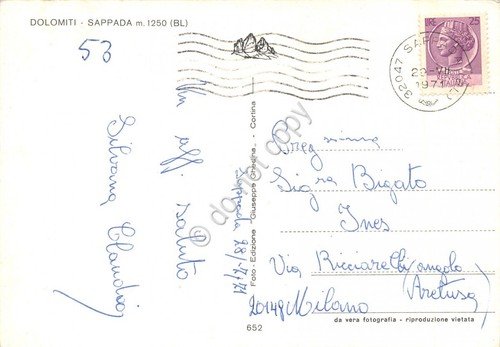 DOLOMITI - SAPPADA m. 1250 (BL)
53
Un aff. saluto
Silvana Claudio
Sappada 28/7/71
Foto - Edizione Giuseppe Ghedina - Cortina
32047 SAPPADA
28-VII
1971
25
Preg.ssima
Sig.ra Bigato
Ines
Via Ricciarelli angolo
(Aretusa)
20149 Milano
da vera fotografia - riproduzione vietata
652
do not copy